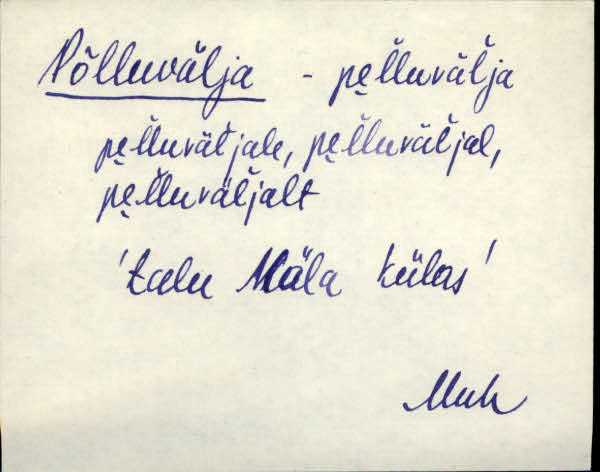 Põlluvälja - pe̮l̆luväl̆ja
pe̮l̆luväl̆jale, pe̮l̆luväl̆jal,
pe̮l̆luväl̆jalt
'talu Mäla külas'
Muh